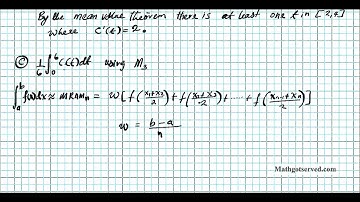 By the mean value Theorem there is at least one t in [2,4]
where C'(t) = 2.
ⓒ 1/6 ∫₀⁶ C(t)dt using M₃
∫ₐᵇ f(x)dx ≈ MRAMₙ = w[f((x₁+x₂)/2) + f((x₂+x₃)/2) + ..... + f((xₙ₋₁+xₙ)/2)]
w = (b-a)/n
Mathgotserved.com